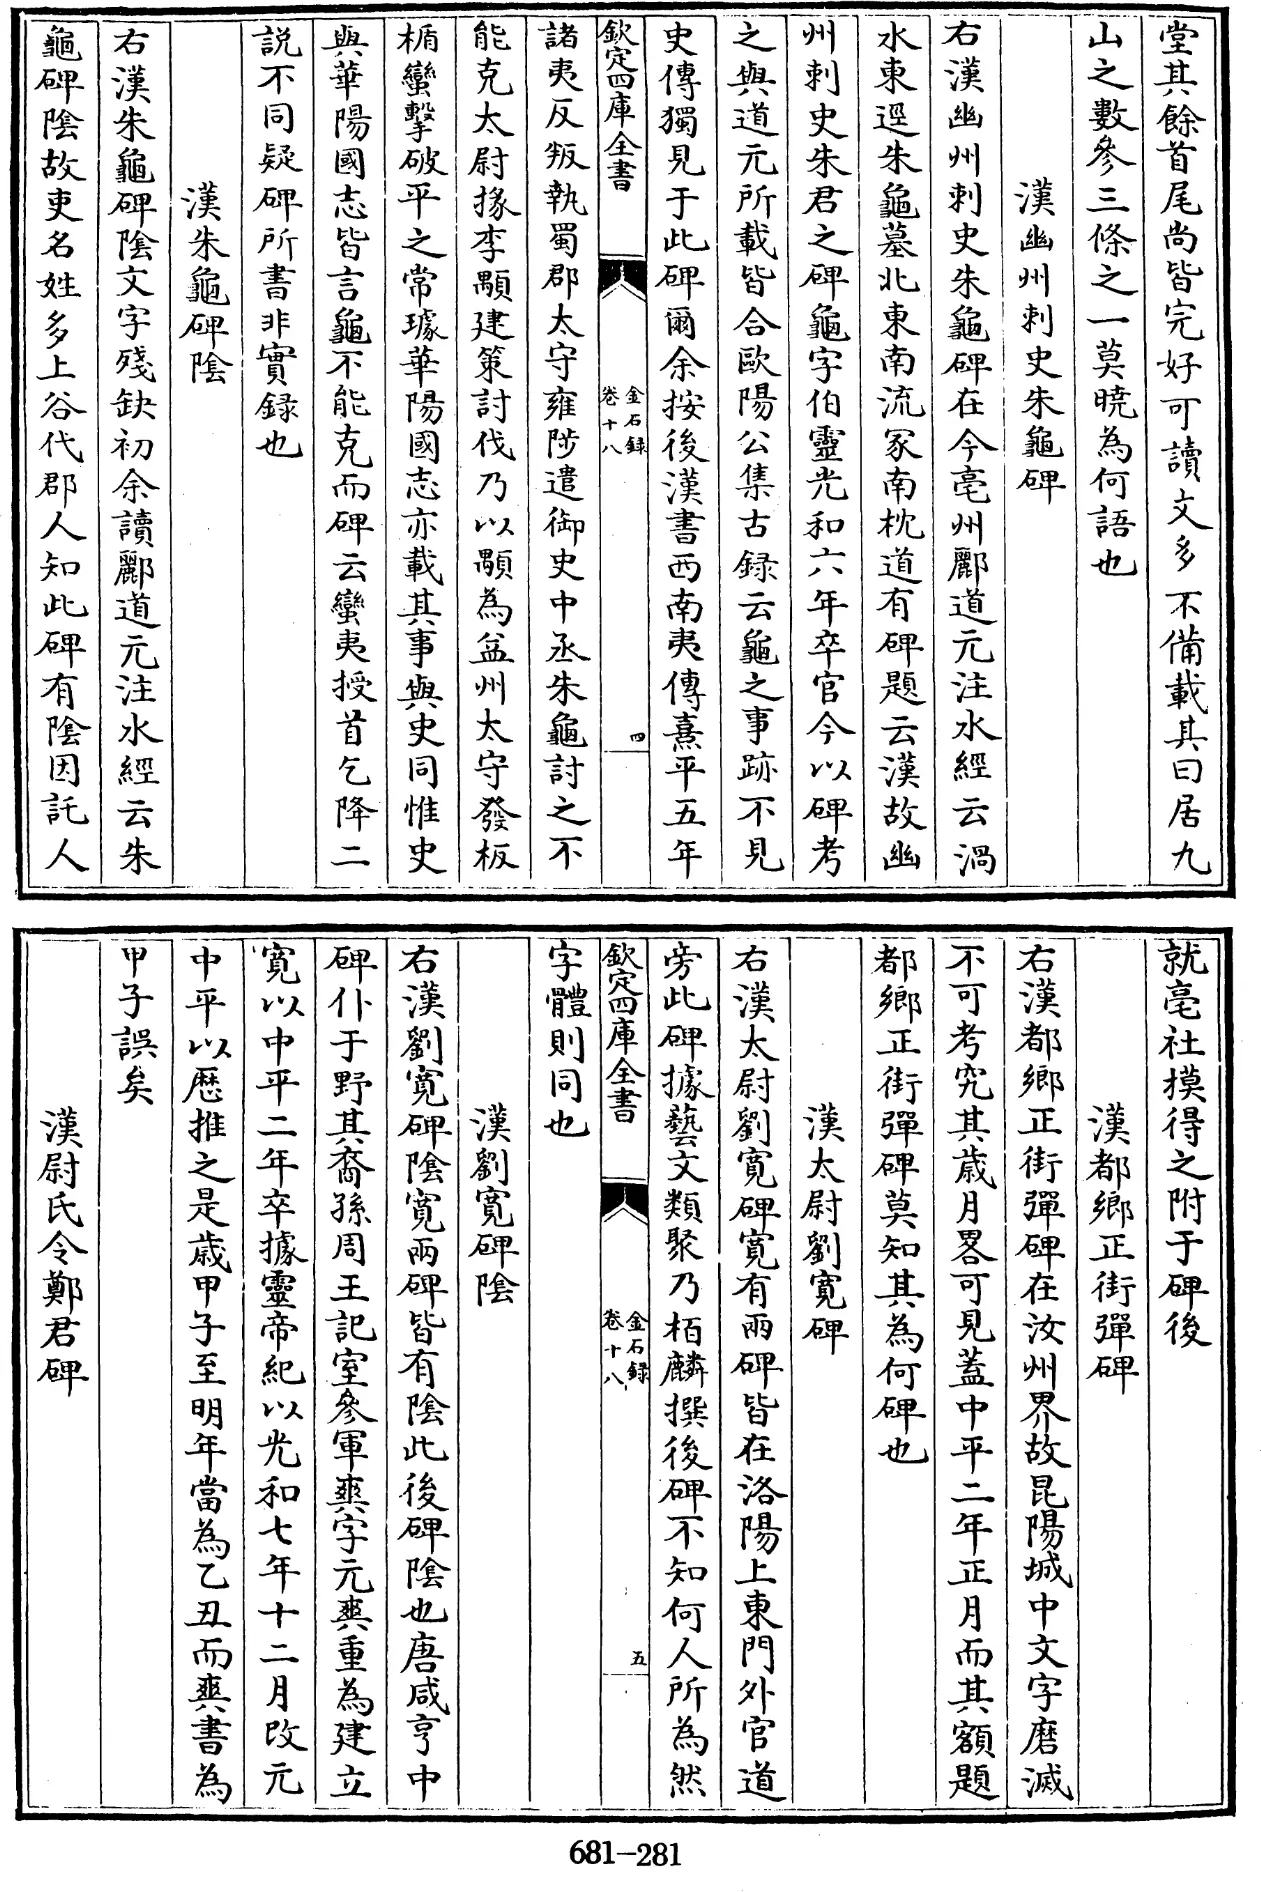 堂其餘首尾尚皆完好可讀文多不備載其曰居九
山之數參三條之一莫曉為何語也
漢幽州刺史朱龜碑
右漢幽州刺史朱龜碑在今亳州酈道元注水經云渦
水東逕朱龜墓北東南流冢南枕道有碑題云漢故幽
州刺史朱君之碑龜字伯靈光和六年卒官今以碑考
之與道元所載皆合歐陽公集古録云龜之事跡不見
史傳獨見于此碑爾余按後漢書西南夷傳熹平五年
欽定四庫全書
金石録
卷十八
四
諸夷反叛執蜀郡太守雍陟遣御史中丞朱龜討之不
能克太尉掾李顒建策討伐乃以顒為益州太守發板
楯蠻擊破平之常璩華陽國志亦載其事與史同惟史
與華陽國志皆言龜不能克而碑云蠻夷授首乞降二
説不同疑碑所書非實録也
漢朱龜碑陰
右漢朱龜碑陰文字殘缺初余讀酈道元注水經云朱
龜碑陰故吏名姓多上谷代郡人知此碑有陰因託人
就亳社摸得之附于碑後
漢都鄉正街彈碑
右漢都鄉正街彈碑在汝州界故昆陽城中文字磨滅
不可考究其歲月畧可見蓋中平二年正月而其額題
都鄉正街彈碑莫知其為何碑也
漢太尉劉寛碑
右漢太尉劉寛碑寛有兩碑皆在洛陽上東門外官道
旁此碑據藝文類聚乃栢麟撰後碑不知何人所為然
欽定四庫全書
金石録
卷十八
五
字體則同也
漢劉寛碑陰
右漢劉寛碑陰寛兩碑皆有陰此後碑陰也唐咸亨中
碑仆于野其裔孫周王記室參軍爽字元爽重為建立
寛以中平二年卒據靈帝紀以光和七年十二月改元
中平以厯推之是歲甲子至明年當為乙丑而爽書為
甲子誤矣
漢尉氏令鄭君碑
681-281